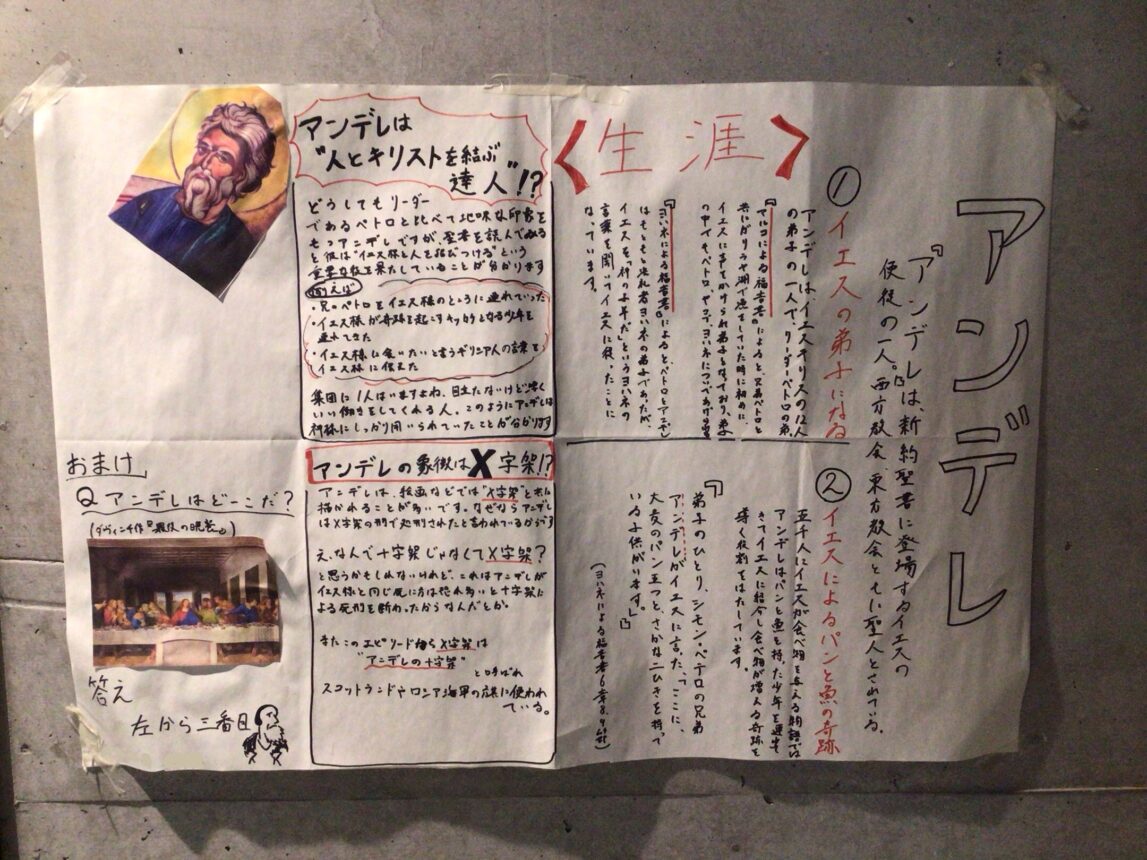 アンデレ
『アンデレ』は、新約聖書に登場するイエスの
使徒の一人。西方教会、東方教会ともに聖人とされている。
〈生涯〉
①イエスの弟子になる
アンデレは、イエスキリストの12人
の弟子の一人で、リーダーペトロの弟。
『マルコによる福音書』によると、兄弟ペトロと
共にガリラヤ湖で漁をしていた時に初めに、
イエスに声をかけられ弟子となっており、弟子
の中でもペトロ、ヤコブ、ヨハネについで
『ヨハネによる福音書』によると、ペトロとアンデレ
はそもそも洗礼者ヨハネの弟子であったが、
イエスを「神の子羊だ」というヨハネの
言葉を聞いてイエスに従ったことに
なっています。
②イエスによるパンと魚の奇跡
五千人にイエスが食べ物を与える物語では、
アンデレはパンと魚を持った少年を連れ
きてイエスに紹介し食べ物が増える奇跡を
導く役割をはたしています。
『弟子のひとり、シモン・ペテロの兄弟
アンデレがイエスに言った、「ここに、
大麦のパン五つと、さかな二ひきを持って
いる子供がいます。」』
(ヨハネによる福音書6章8、9
アンデレは
"人とキリストを結ぶ
達人"!?
どうしてもリーダー
であるペトロと比べて地味な印象を
もつアンデレですが、聖書を読んでみる
と彼は"イエス様と人を結びつける"という
重要な役を果たしていることが分かります
例えば
・兄のペトロをイエス様のところに連れていった
・イエス様が奇跡を起こすキッカケとなる少年を
連れてきた
・イエス様に会いたいと言うギリシア人の言葉を
イエス様に伝えた
集団に1人はいますよね、目立たないけど凄く
いい働きをしてくれる人。このようにアンデレは
神様にしっかり用いられていたことが分かります
アンデレの象徴はX字架!?
アンデレは、絵画などでは"X字架"と共に
描かれることが多いです。なぜならアンデレ
はX字架の刑で処刑されたと言われているからです
え、なんで十字架じゃなくてX字架?
と思うかもしれないけれど、これはアンデレが
イエス様と同じ死に方は恐れ多いと十字架に
よる死刑を断わったからなんだとか。
またこのエピソードからX字架は
"アンデレの十字架"
と呼ばれ
スコットランドやロシア海軍の旗に使われ
ている。
おまけ
Q アンデレはどーこだ?
(ダヴィンチ作『最後の晩餐』)
答え
左から三番目